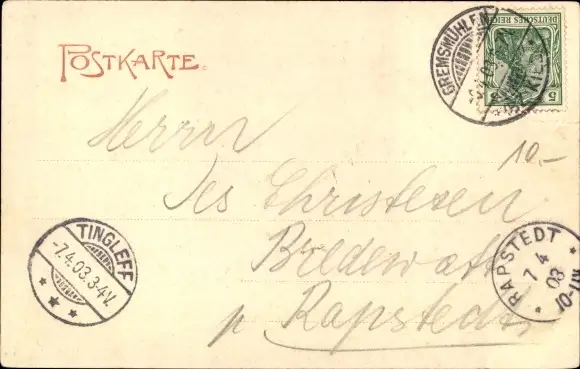 POSTKARTE
GREMSMÜHLEN
DEUTSCHES REICH
5 5
10.-
Herrn
Jes Christesen
Bredewatt
p Rapstedt
TINGLEFF
-7.4.03.3-4V.
RAPSTEDT
7 4
03
10-11V